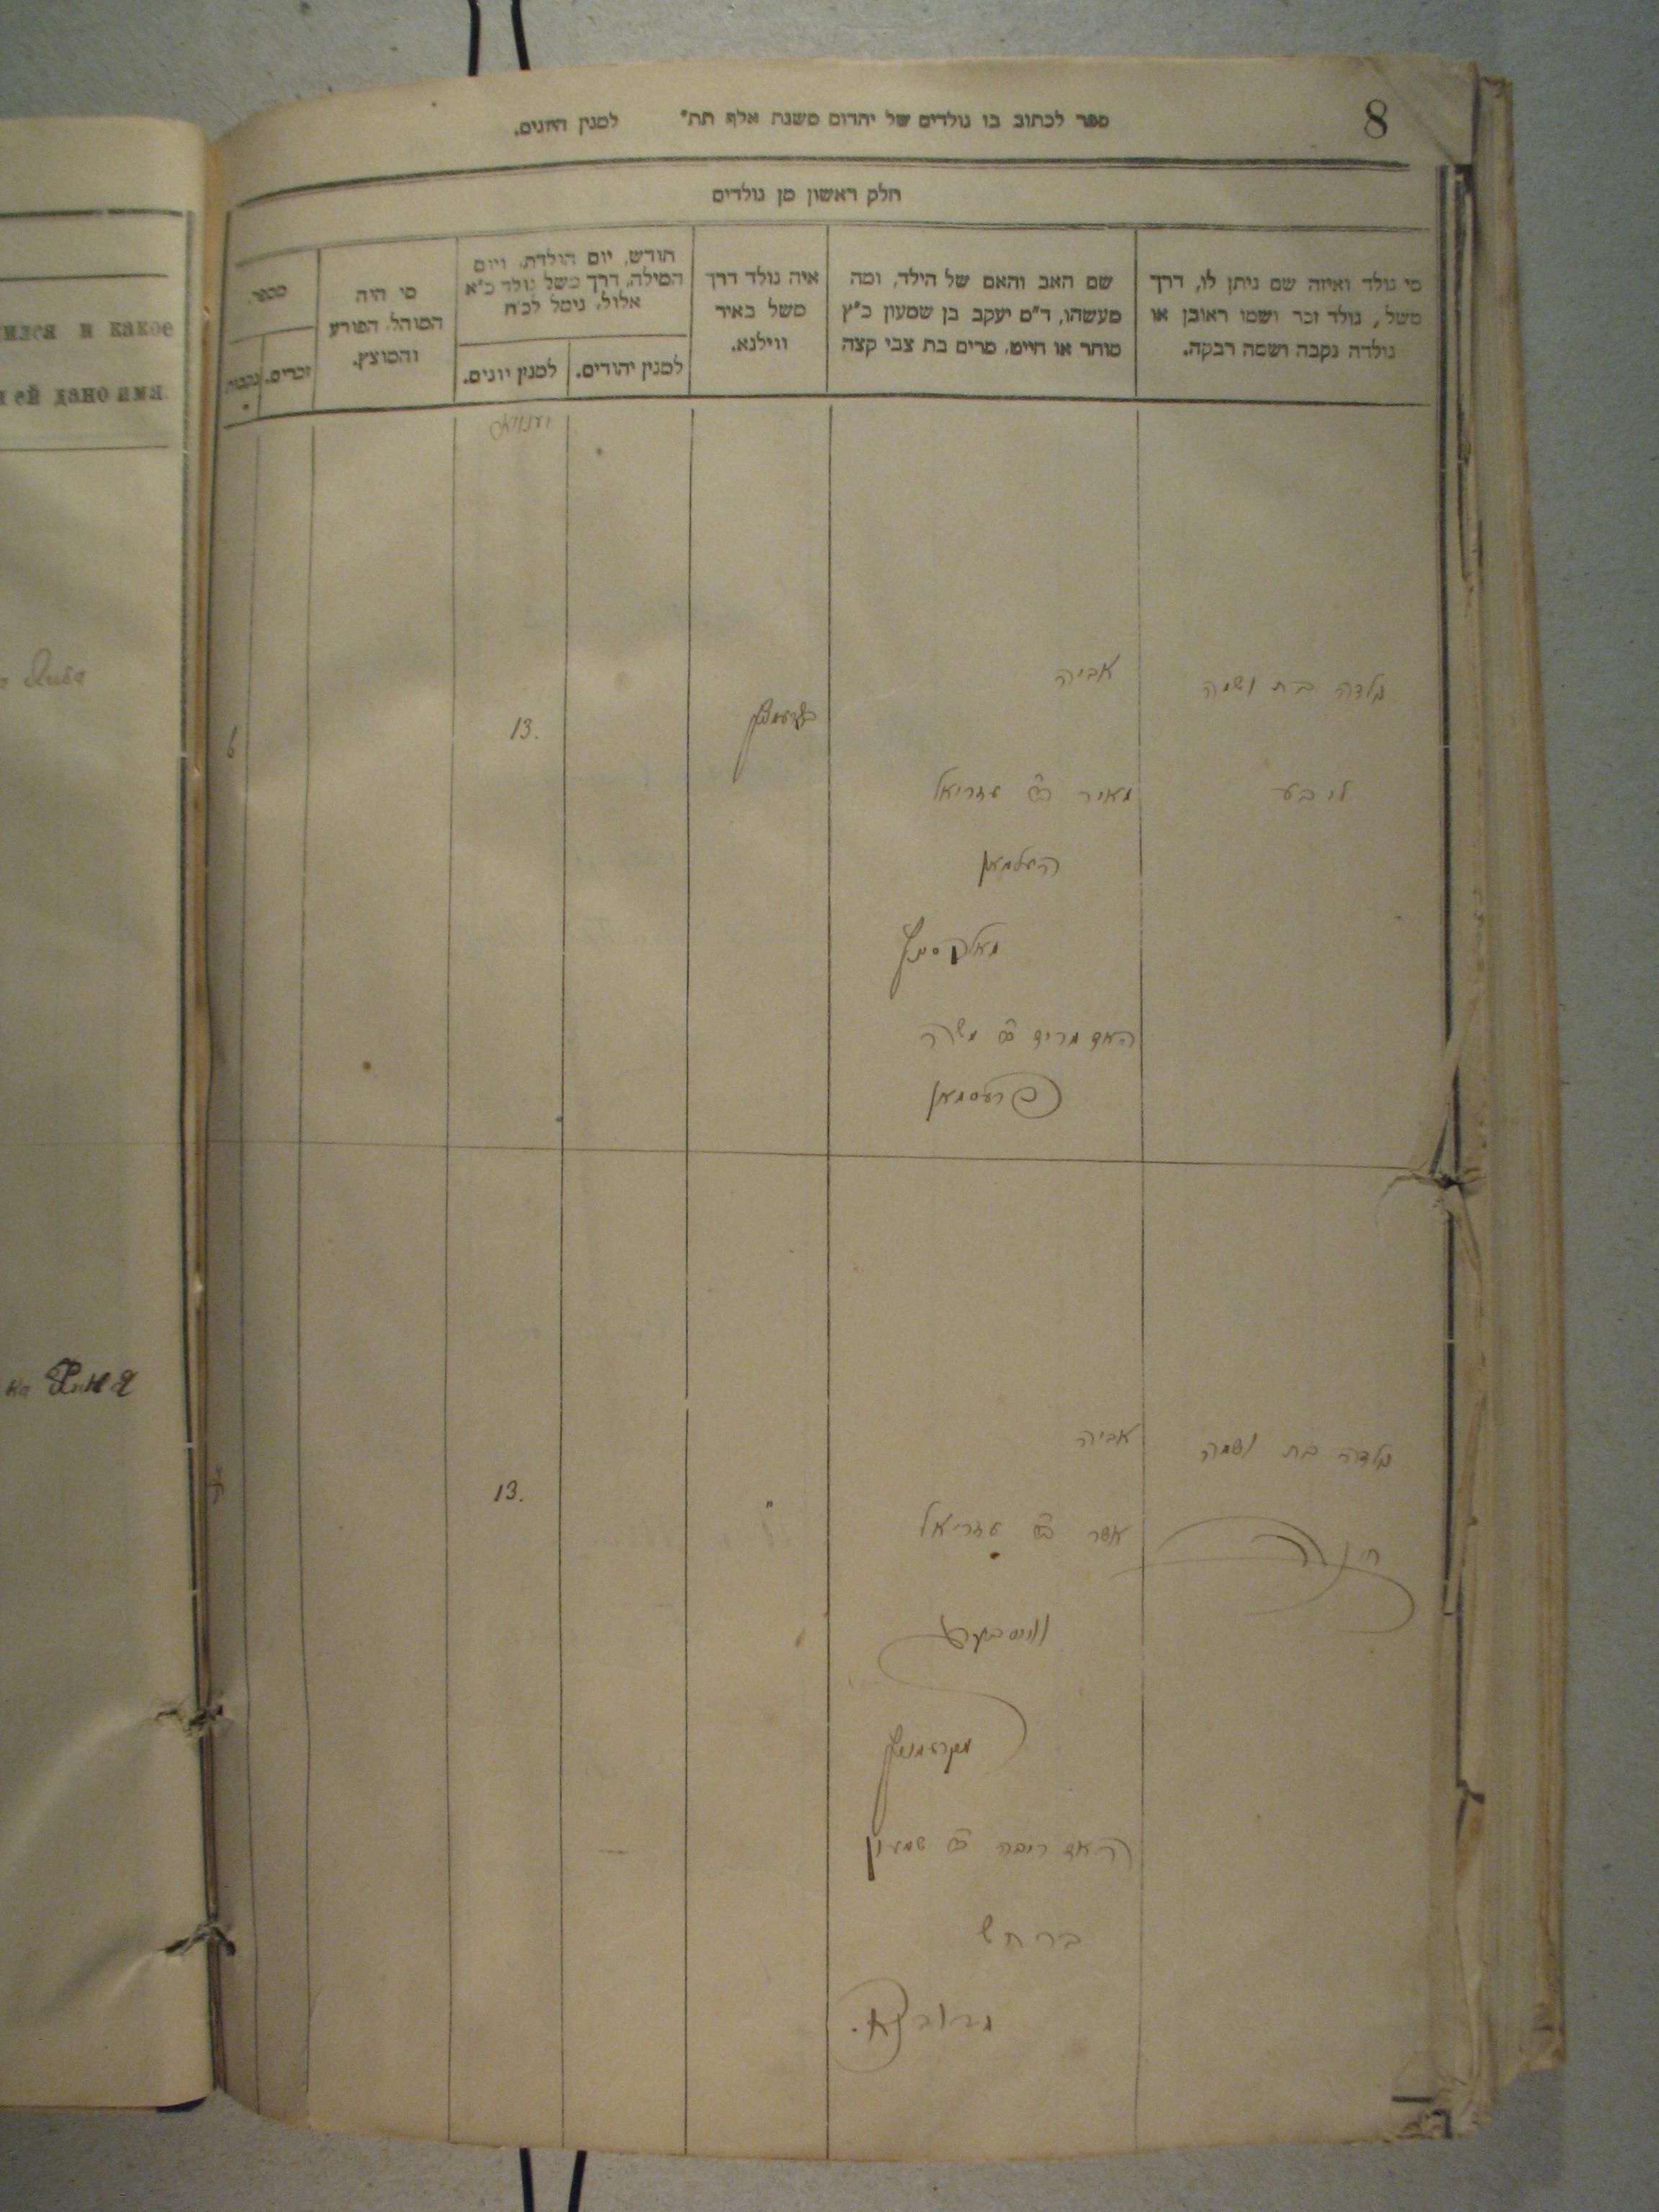 8
ספר לכתוב בו נולדים של יהדום משנת אלף תת״ למנין היונים.
חלק ראשון מן נולדים
מי נולד ואיזה שם ניתן לו, דרך
משל, נולד זכר ושמו ראובן או
נולדה נקבה ושמה רבקה.
שם האב והאם של הילד, ומה
מעשהו, ד״מ יעקב בן שמעון כ״ץ
סוחר או חייט, מרים בת צבי קצה
איה נולד דרך
משל באיר
ווילנא.
חודש, יום הולדת, ויום
המילה, דרך משל נולד כ״א
אלול, נימל לכ״ח
למנין יהודים.
למנין יונים.
מי היה
המוהל, הפורע
והמוצץ.
מספר.
זכרים.
נקבות
ился и какое
ей дано имя
נולדה בת ושמה
ליבע
אביה
מאיר ב״ר עזריאל
העלמאן
האם מרים ב״ר משה
פרעסמאן
13.
6
Либа
נולדה בת ושמה
חינה
אביה
אשר ב״ר עזריאל
האם ריבה ב״ר שמעון
"
13.
7
ка Хиня